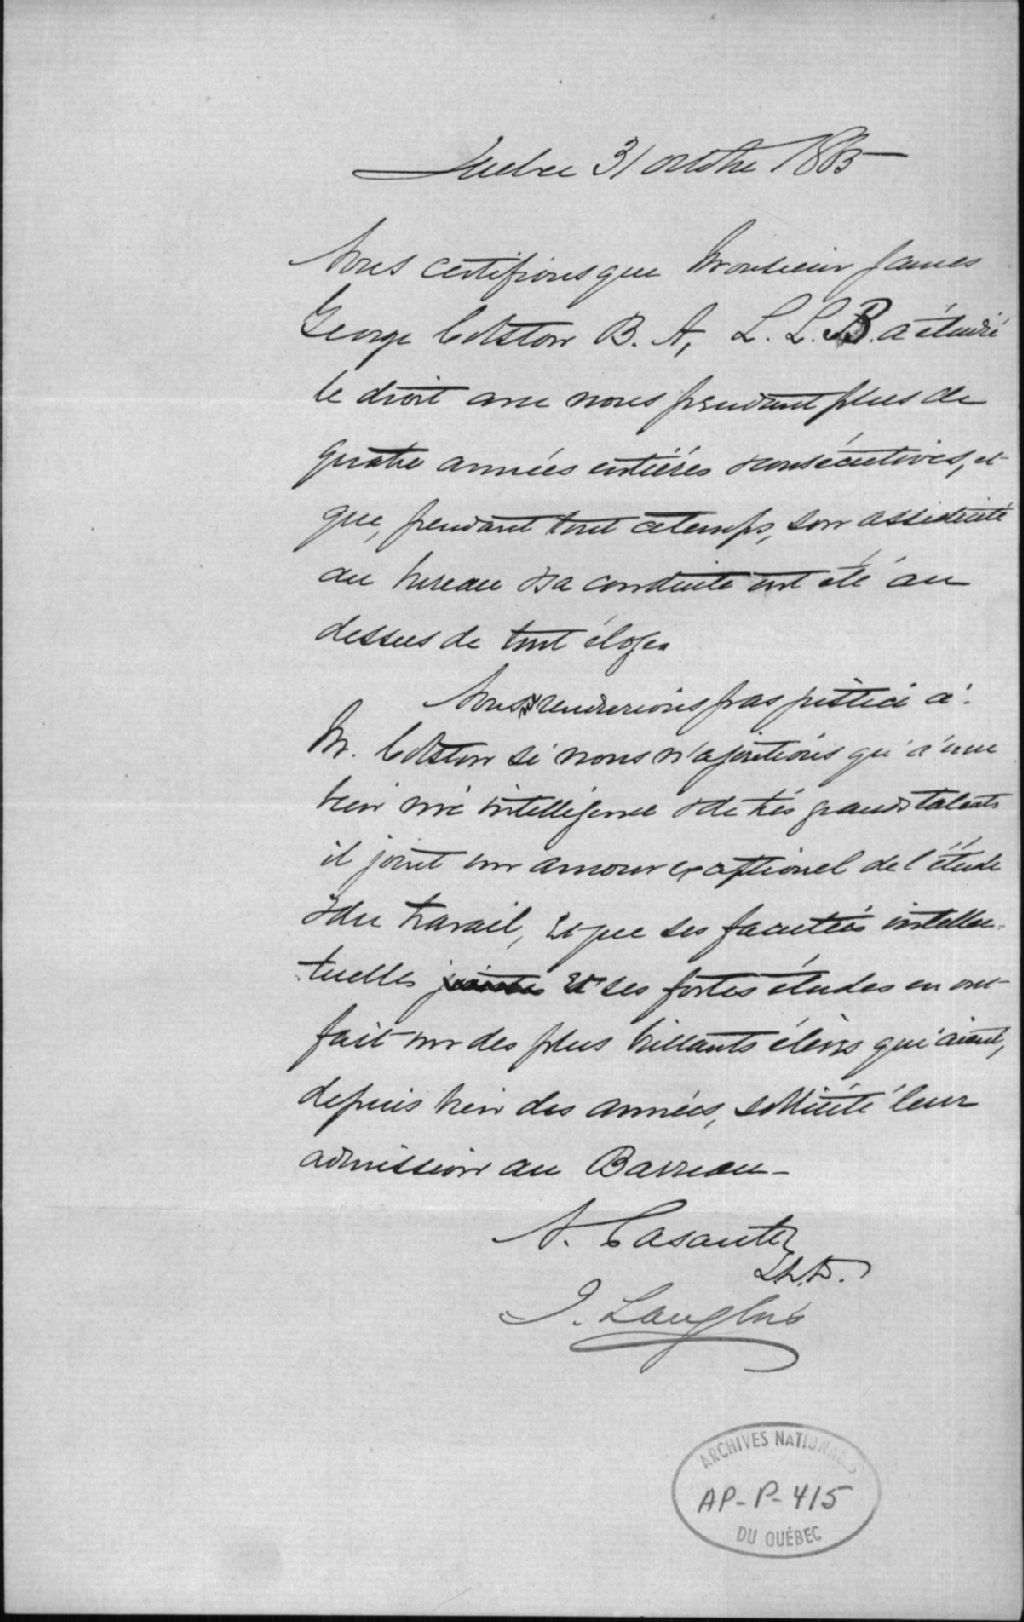 Quebec 31 octobre 1865
Nous certifions que Monsieur James
George Colston B. A, L. L. B. a étudié
le droit avec nous pendant plus de
quatre années entières & consécutives, et
que, pendant tout ce temps, son assiduité
au bureau & sa conduite ont été au
dessus de tout éloge.
Nous rendrerions pas justice à
M. Colston si nous n'ajoutions qu'à une
bien vive intelligence & de très grands talents
il joint un amour exceptionel de l'étude
& du travail, et que ses facultés intellec-
tuelles et ses fortes études en ont
fait un des plus brillants élèves qui aient,
depuis bien des années, sollicité leur
admission au Barreau -
N. Casault
LL.D.
J. Langlois
ARCHIVES NATIONALES
AP-P-415
DU QUÉBEC